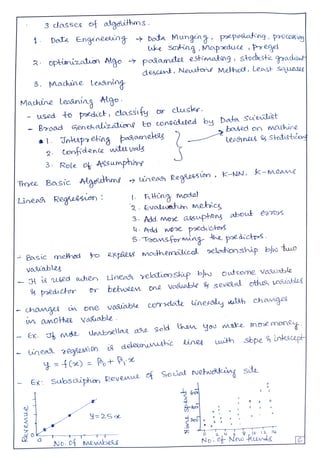 3 classes of algorithms.
1. Data Engineering → Data Munging, preparating, processing
like Sorting, Mapreduce, Pregel
2. optimization Algo → parameter estimating, stochastic gradient
descent, Newtons Method, Least squares
3. Machine Learning
Machine Learning Algo.
- used to predict, classify or cluster.
- Broad Generalizations to considered by Data Scientist
1. Interpreting parameters
2. Confidence intervals
3. Role of Assumptions
based on machine
learners & statistians
Three Basic Algorithms → Linear Regression, K-NN, K-means
Linear Regression :
1. Fitting model
2. Evaluation metrics
3. Add more assuptions about errors
4. Add more predictors
5. Transforming the predictors.
- Basic method to express mathematical relationship b/w two
variables
- It is used when Linear relationship b/w outcome variable
& predictor or between one variable & several other variables
- changes in one variable correlate linearly with changes
in another variable.
- Ex: If more Umbrellas are sold then you make more money.
- Linear regression is deterministic lines with slope & intercept
y = f(x) = β₀ + β₁x
- Ex: Subscription Revenue of Social Networking site
Revenue
y=25x
0
No. Of Members
Time Spent
No. of New friends